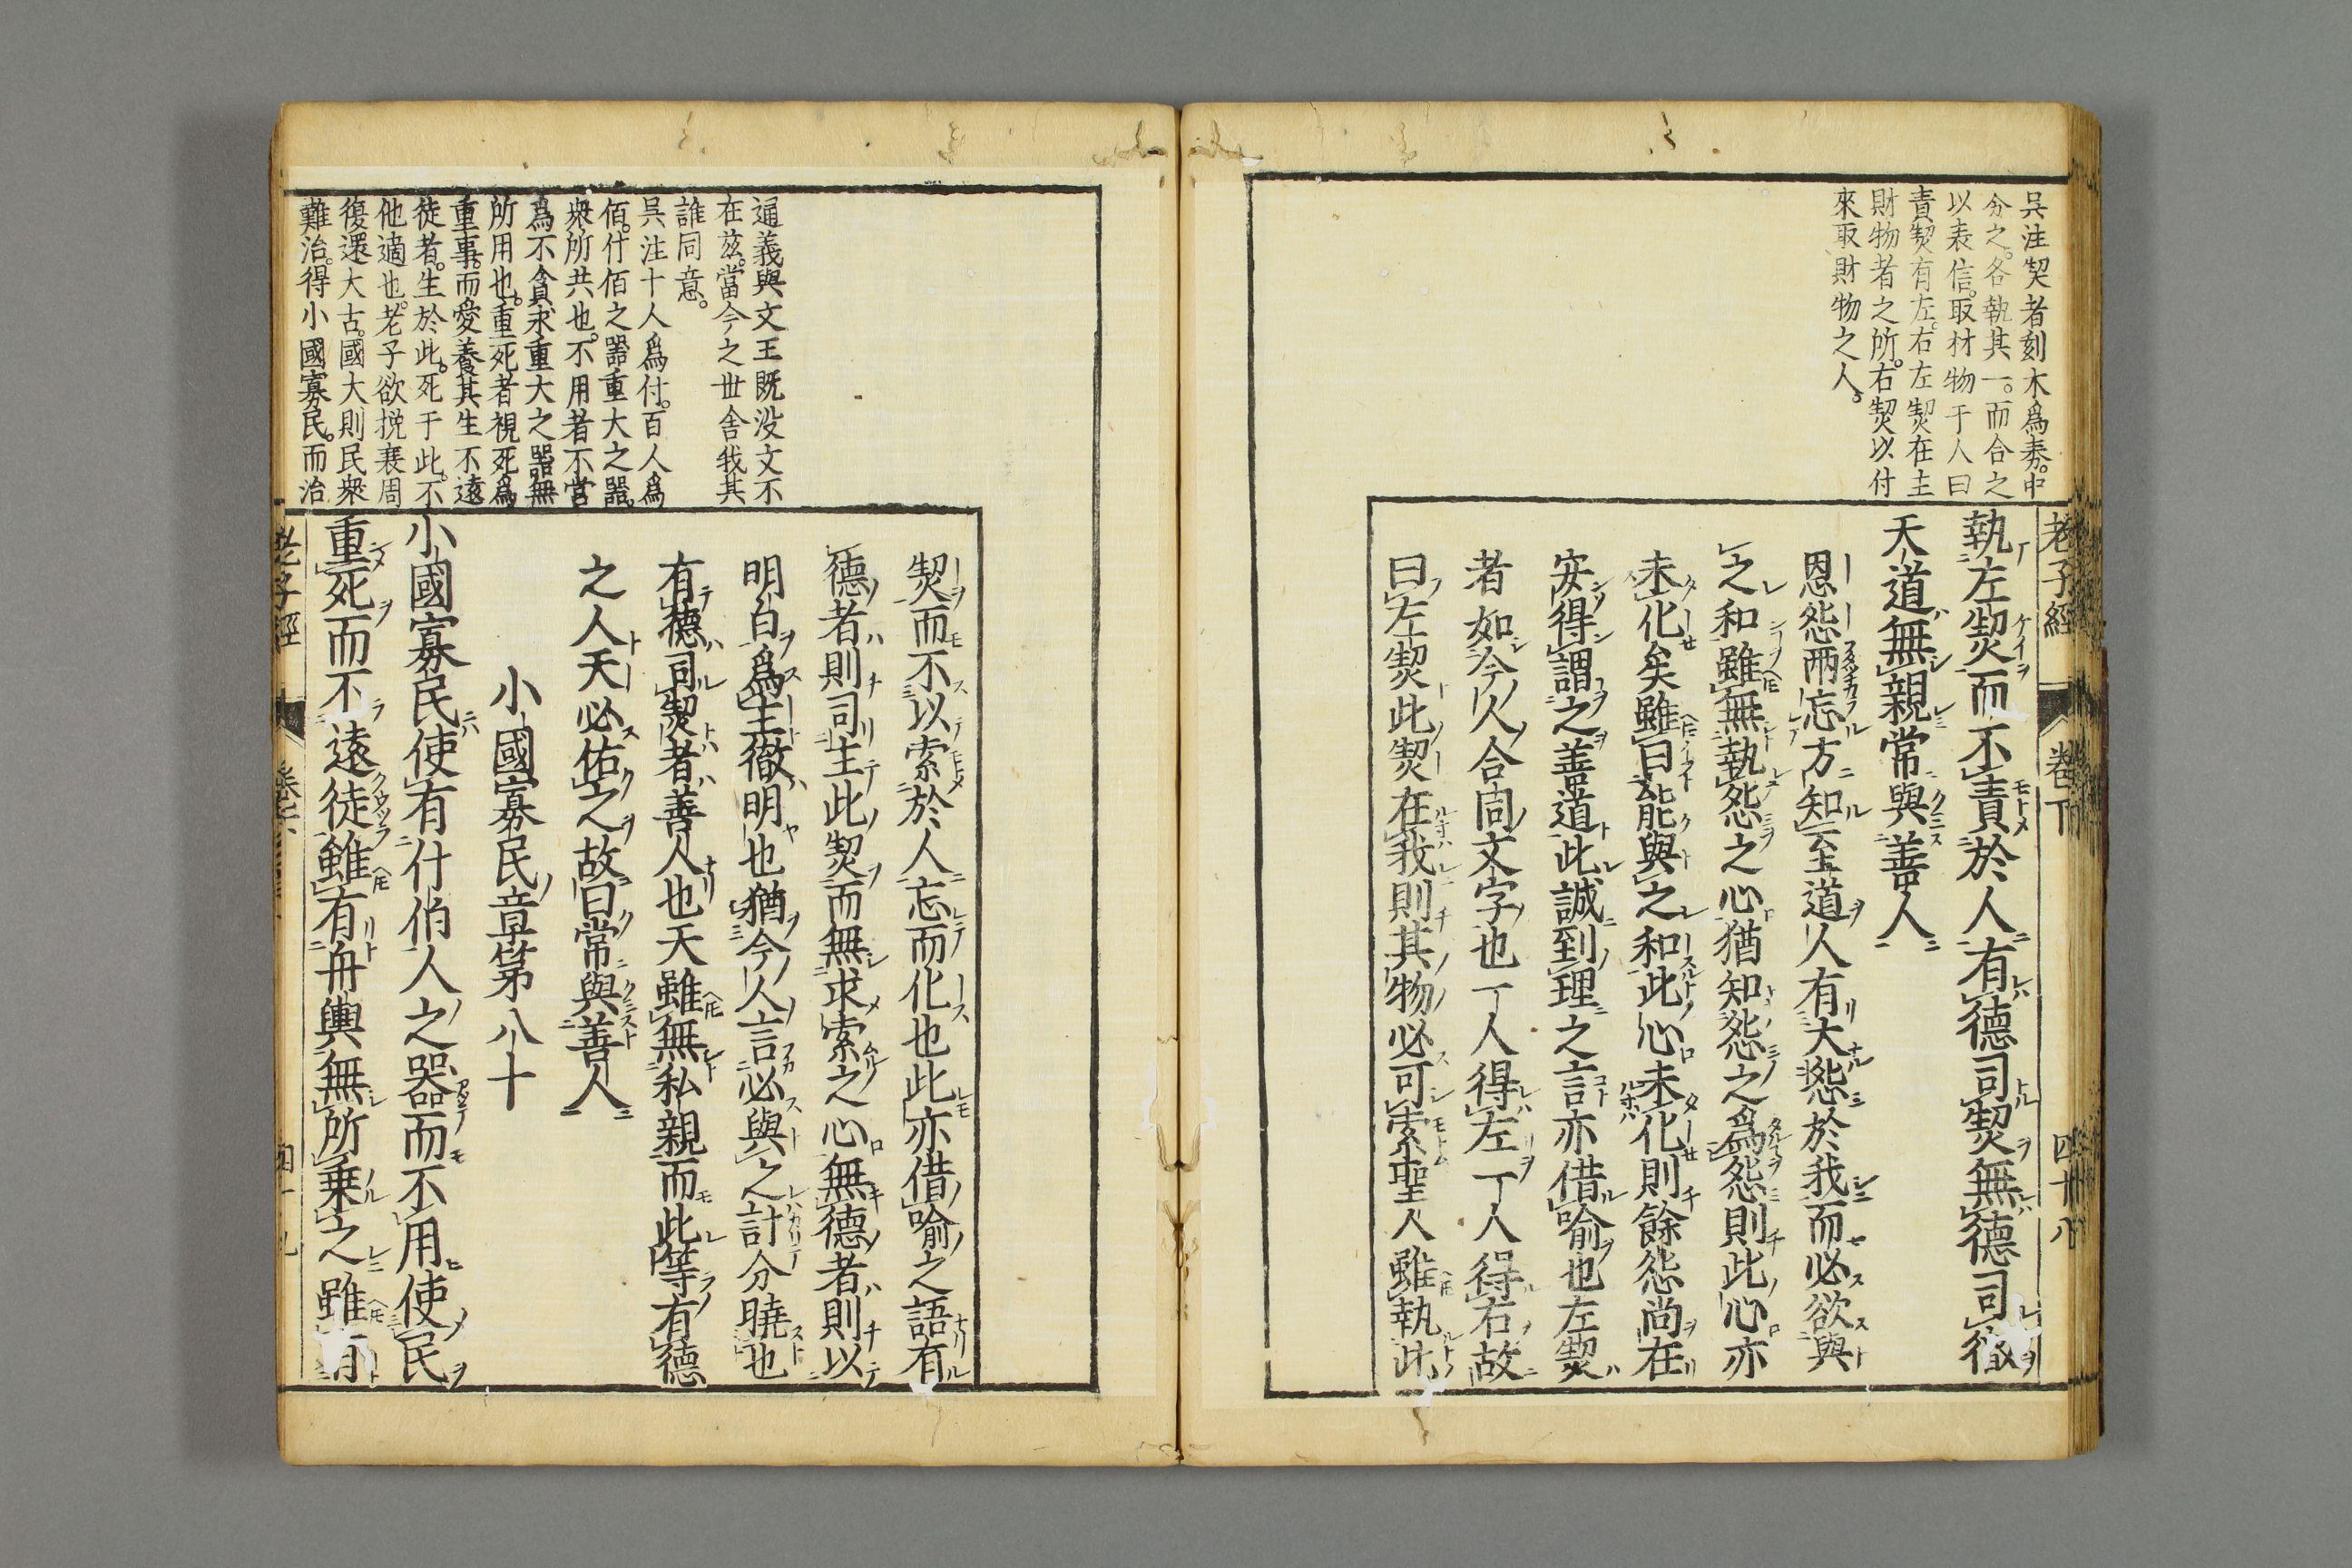 吳注契者刻木爲券。中
分之。各執其一。而合之
以表信。取材物于人曰
責契有左。右左契在主
財物者之所。右契以付
來取財物之人。
老子經 卷下 四十八
執左契而不責於人有德司契無德司徹
天道無親常與善人
恩怨兩忘方知至道人有大怨於我而必欲與
之和雖無執怨之心猶知怨之爲怨則此心亦
未化矣雖曰能與之和此心未化則餘怨尚在
安得謂之善道此誠到理之言亦借喻也左契
者如今人合同文字也一人得左一人得右故
曰左契此契在我則其物必可索聖人雖執此
契而不以索於人忘而化也此亦借喻之語有
德者則司主此契而無求索之心無德者則以
明白爲主徹明也猶今人言必與之計分曉也
有德司契者善人也天雖無私親而此等有德
之人天必佑之故曰常與善人
小國寡民章第八十
小國寡民使有什伯人之器而不用使民
重死而不遠徒雖有舟輿無所乗之雖有
通義與文王既没文不
在茲。當今之世舍我其
誰同意。
吳注十人爲什。百人爲
佰。什佰之器重大之器。
衆所共也。不用者不營
爲不貪求重大之器無
所用也。重死者視死爲
重事。而愛養其生不遠
徒者。生於此。死于此。不
他適也。老子欲挽衰周
復還大古。國大則民衆
難治。得小國寡民。而治
老子經 卷下